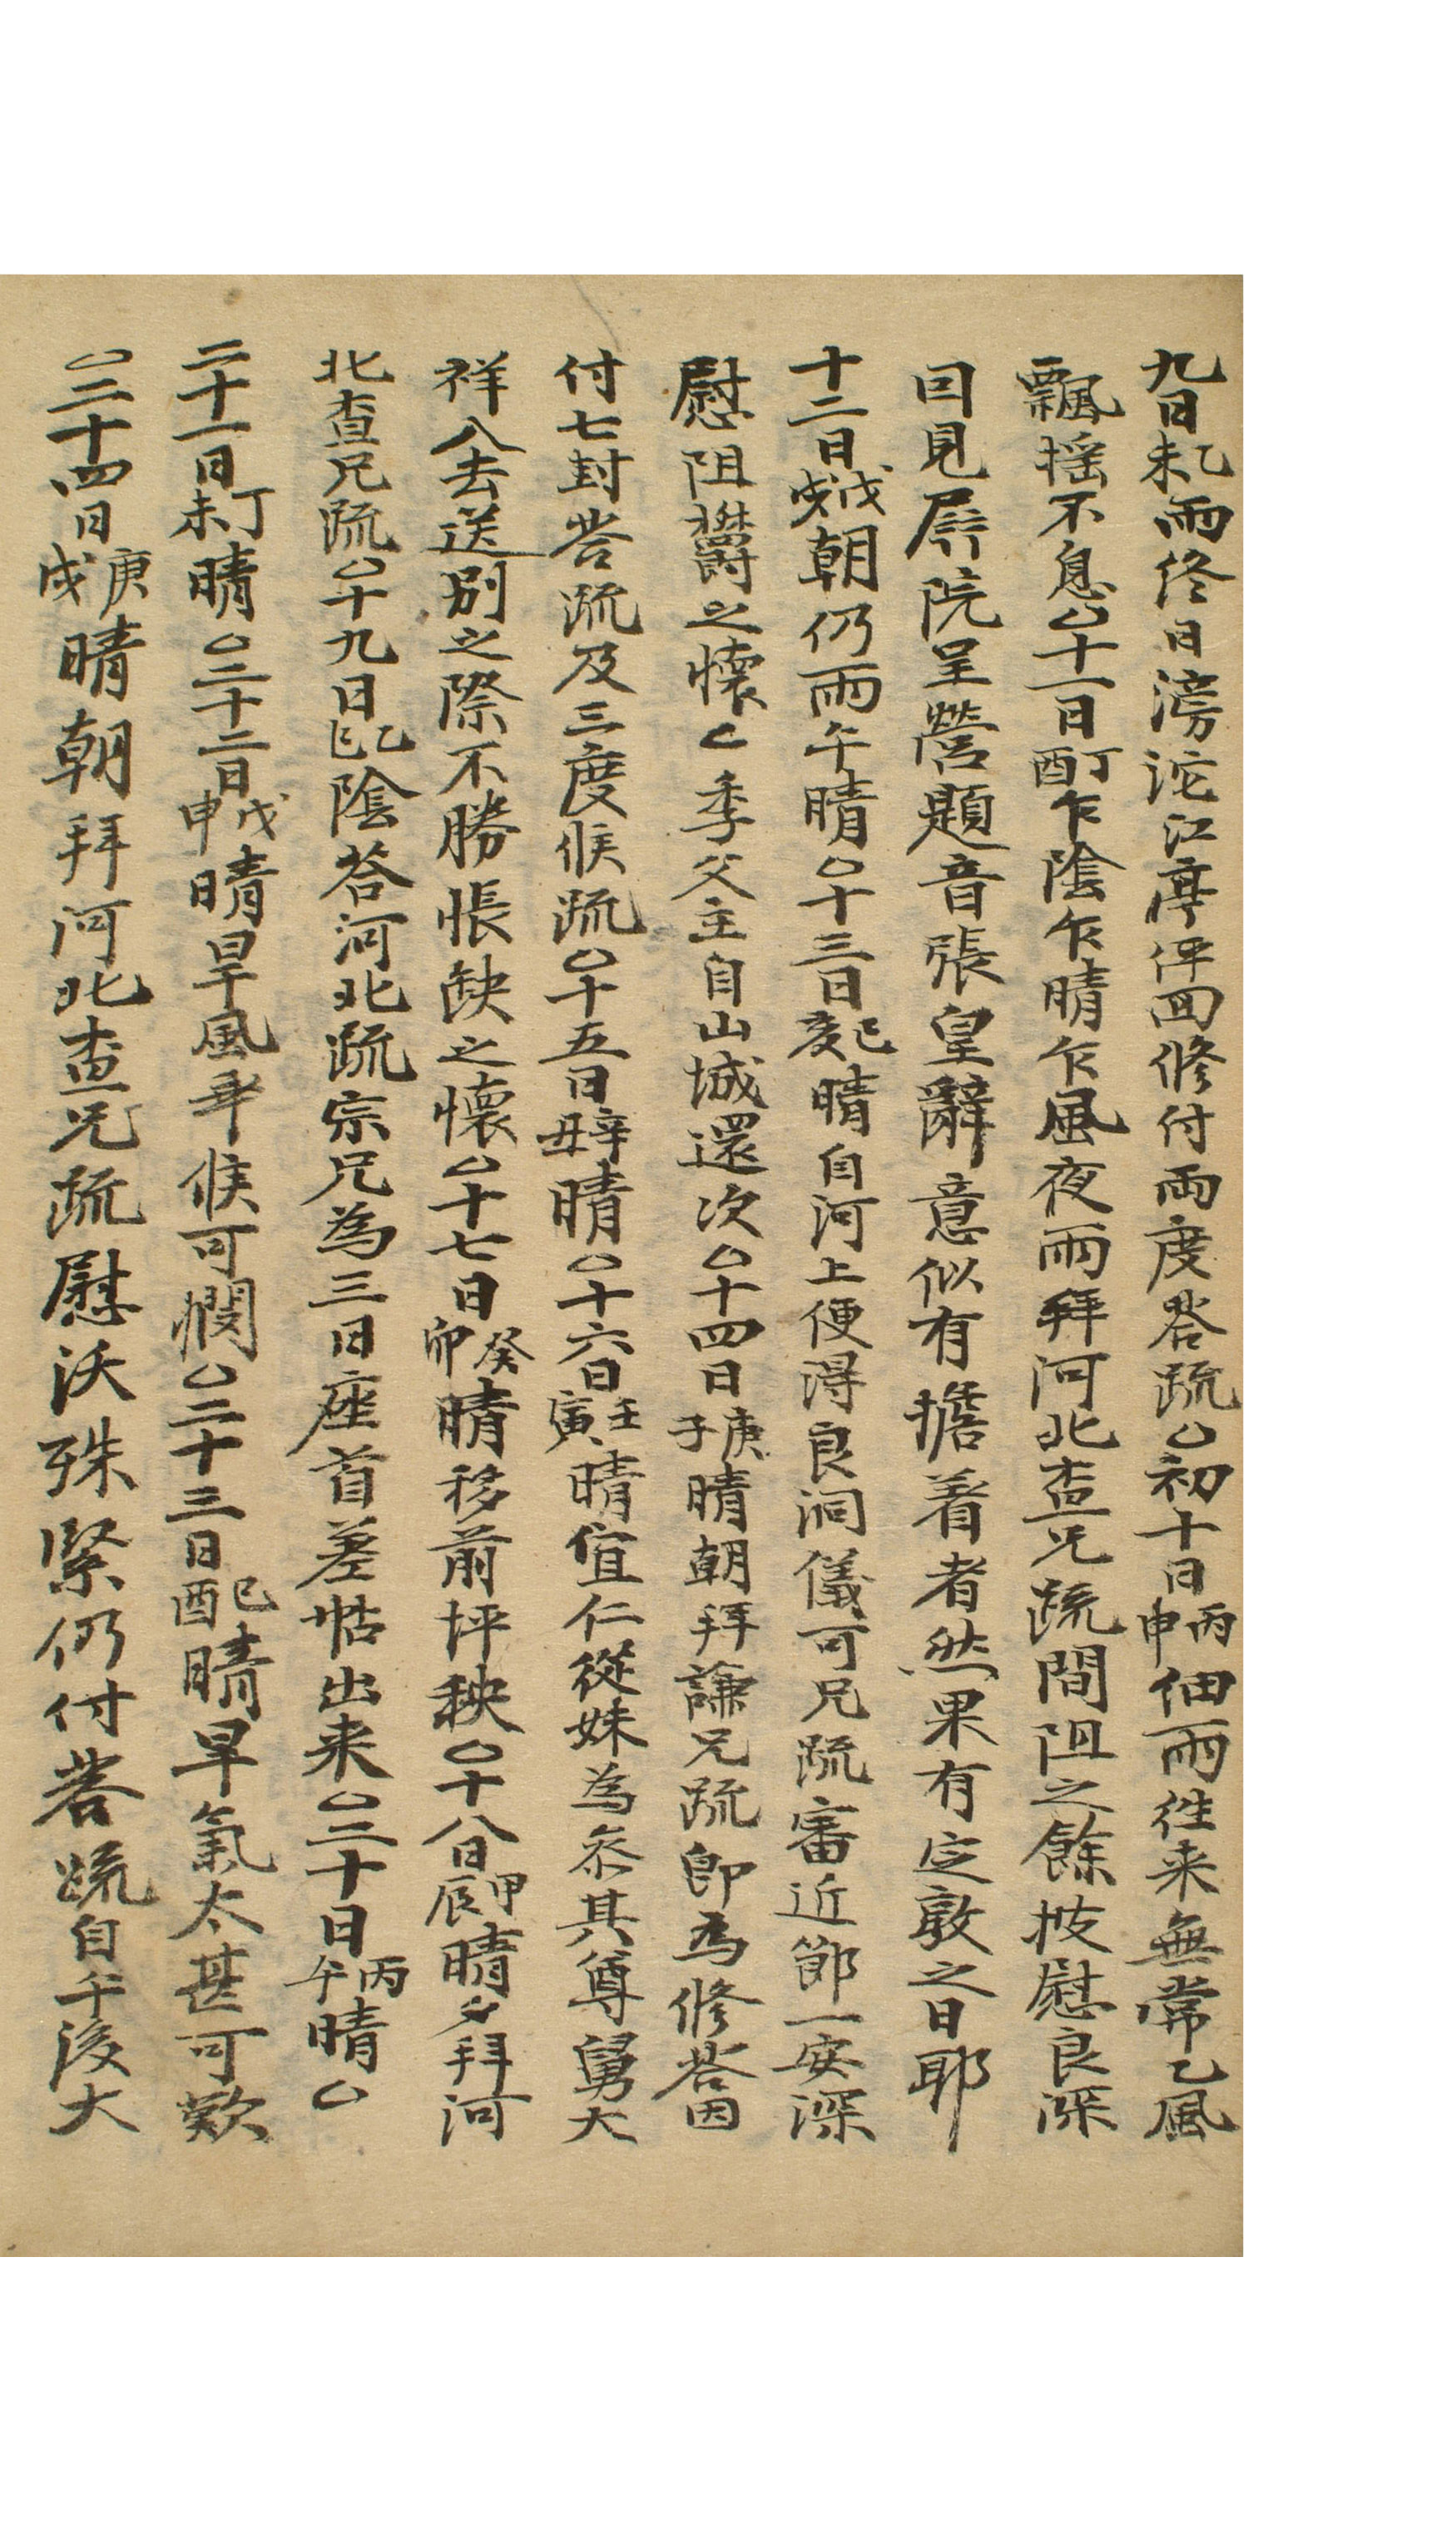 九日乙未雨終日滂沱江亭伻回修付兩度答疏○初十日丙申細雨往来無常乙風
飄揺不息○十一日丁酉乍陰乍晴乍風夜雨拜河北査兄疏間阻之餘披慰良深
回見屛院呈營題音張皇辭意似有擔着者然果有定敦之日耶
十二日戊戌朝仍雨午晴○十三日己亥晴自河上便得良洞儀可兄疏審近節一安深
慰阻欝之懷〻季父主自山城還次○十四日庚子晴朝拜謙兄疏即為修答因
付七封答疏及三度候疏○十五日辛丑晴○十六日壬寅晴宜仁從妹為叅其尊舅大
祥八去送別之際不勝悵缺之懷○十七日癸卯晴移前坪秧○十八日甲辰晴夕拜河
北査兄疏○十九日乙巳陰答河北疏宗兄為三日座首差帖出来○二十日丙午晴○
二十一日丁未晴○二十二日戊申晴旱風年候可憫○二十三日己酉晴旱氣太甚可歎
○二十四日庚戌晴朝拜河北査兄疏慰沃殊緊仍付答疏自午後大